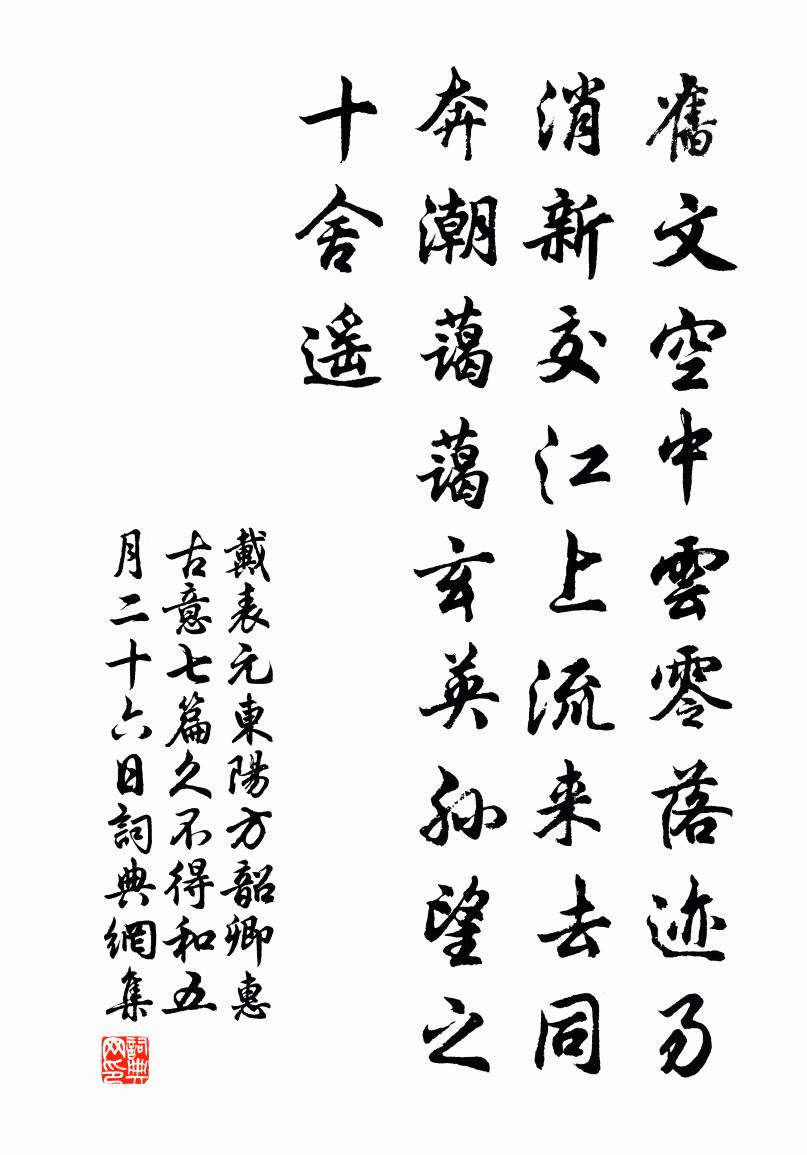 舊文空中雲零落迹易
消新交江上流来去同
奔潮藹藹玄英孫望之
十舍遥
戴表元東陽方韶卿惠
古意七篇久不得和五
月二十六日詞典網集
詞典網印